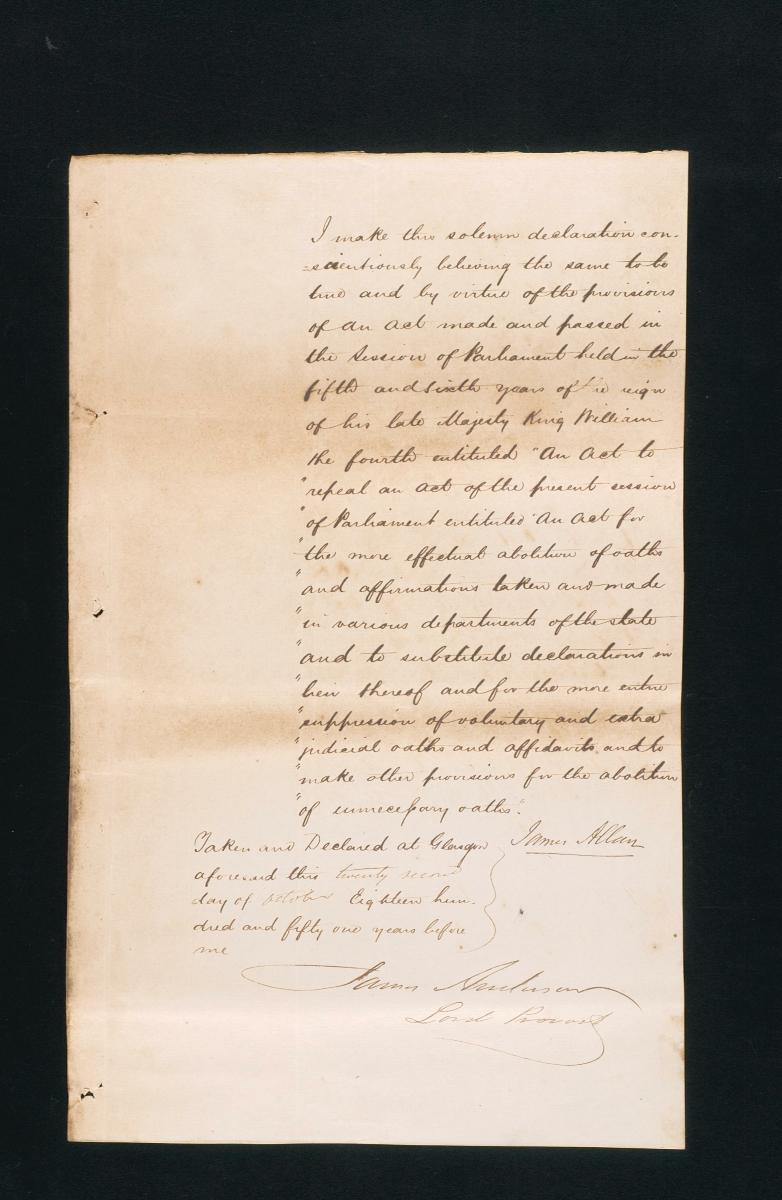 I make this solemn declaration con-
=scientiously believing the same to be
true and by virtue of the provisions
of an act made and passed in
the Session of Parliament held in the
fifth and sixth years of the reign
of his late Majesty King William
the fourth entituled "An Act to
"repeal an act of the present session
"of Parliament entituled "An Act for
"the more effectual abolition of oaths
"and affirmations taken and made
"in various departments of the state
"and to substitute declarations in
"lieu thereof and for the more entire
"suppression of voluntary and extra
"judicial oaths and affidavits and to
"make other provisions for the abolition
"of unnecessary oaths".
James Allan
Taken and Declared at Glasgow
aforesaid this twenty second
day of October Eighteen hun-
dred and fifty one years before
me
James Anderson
Lord Provost